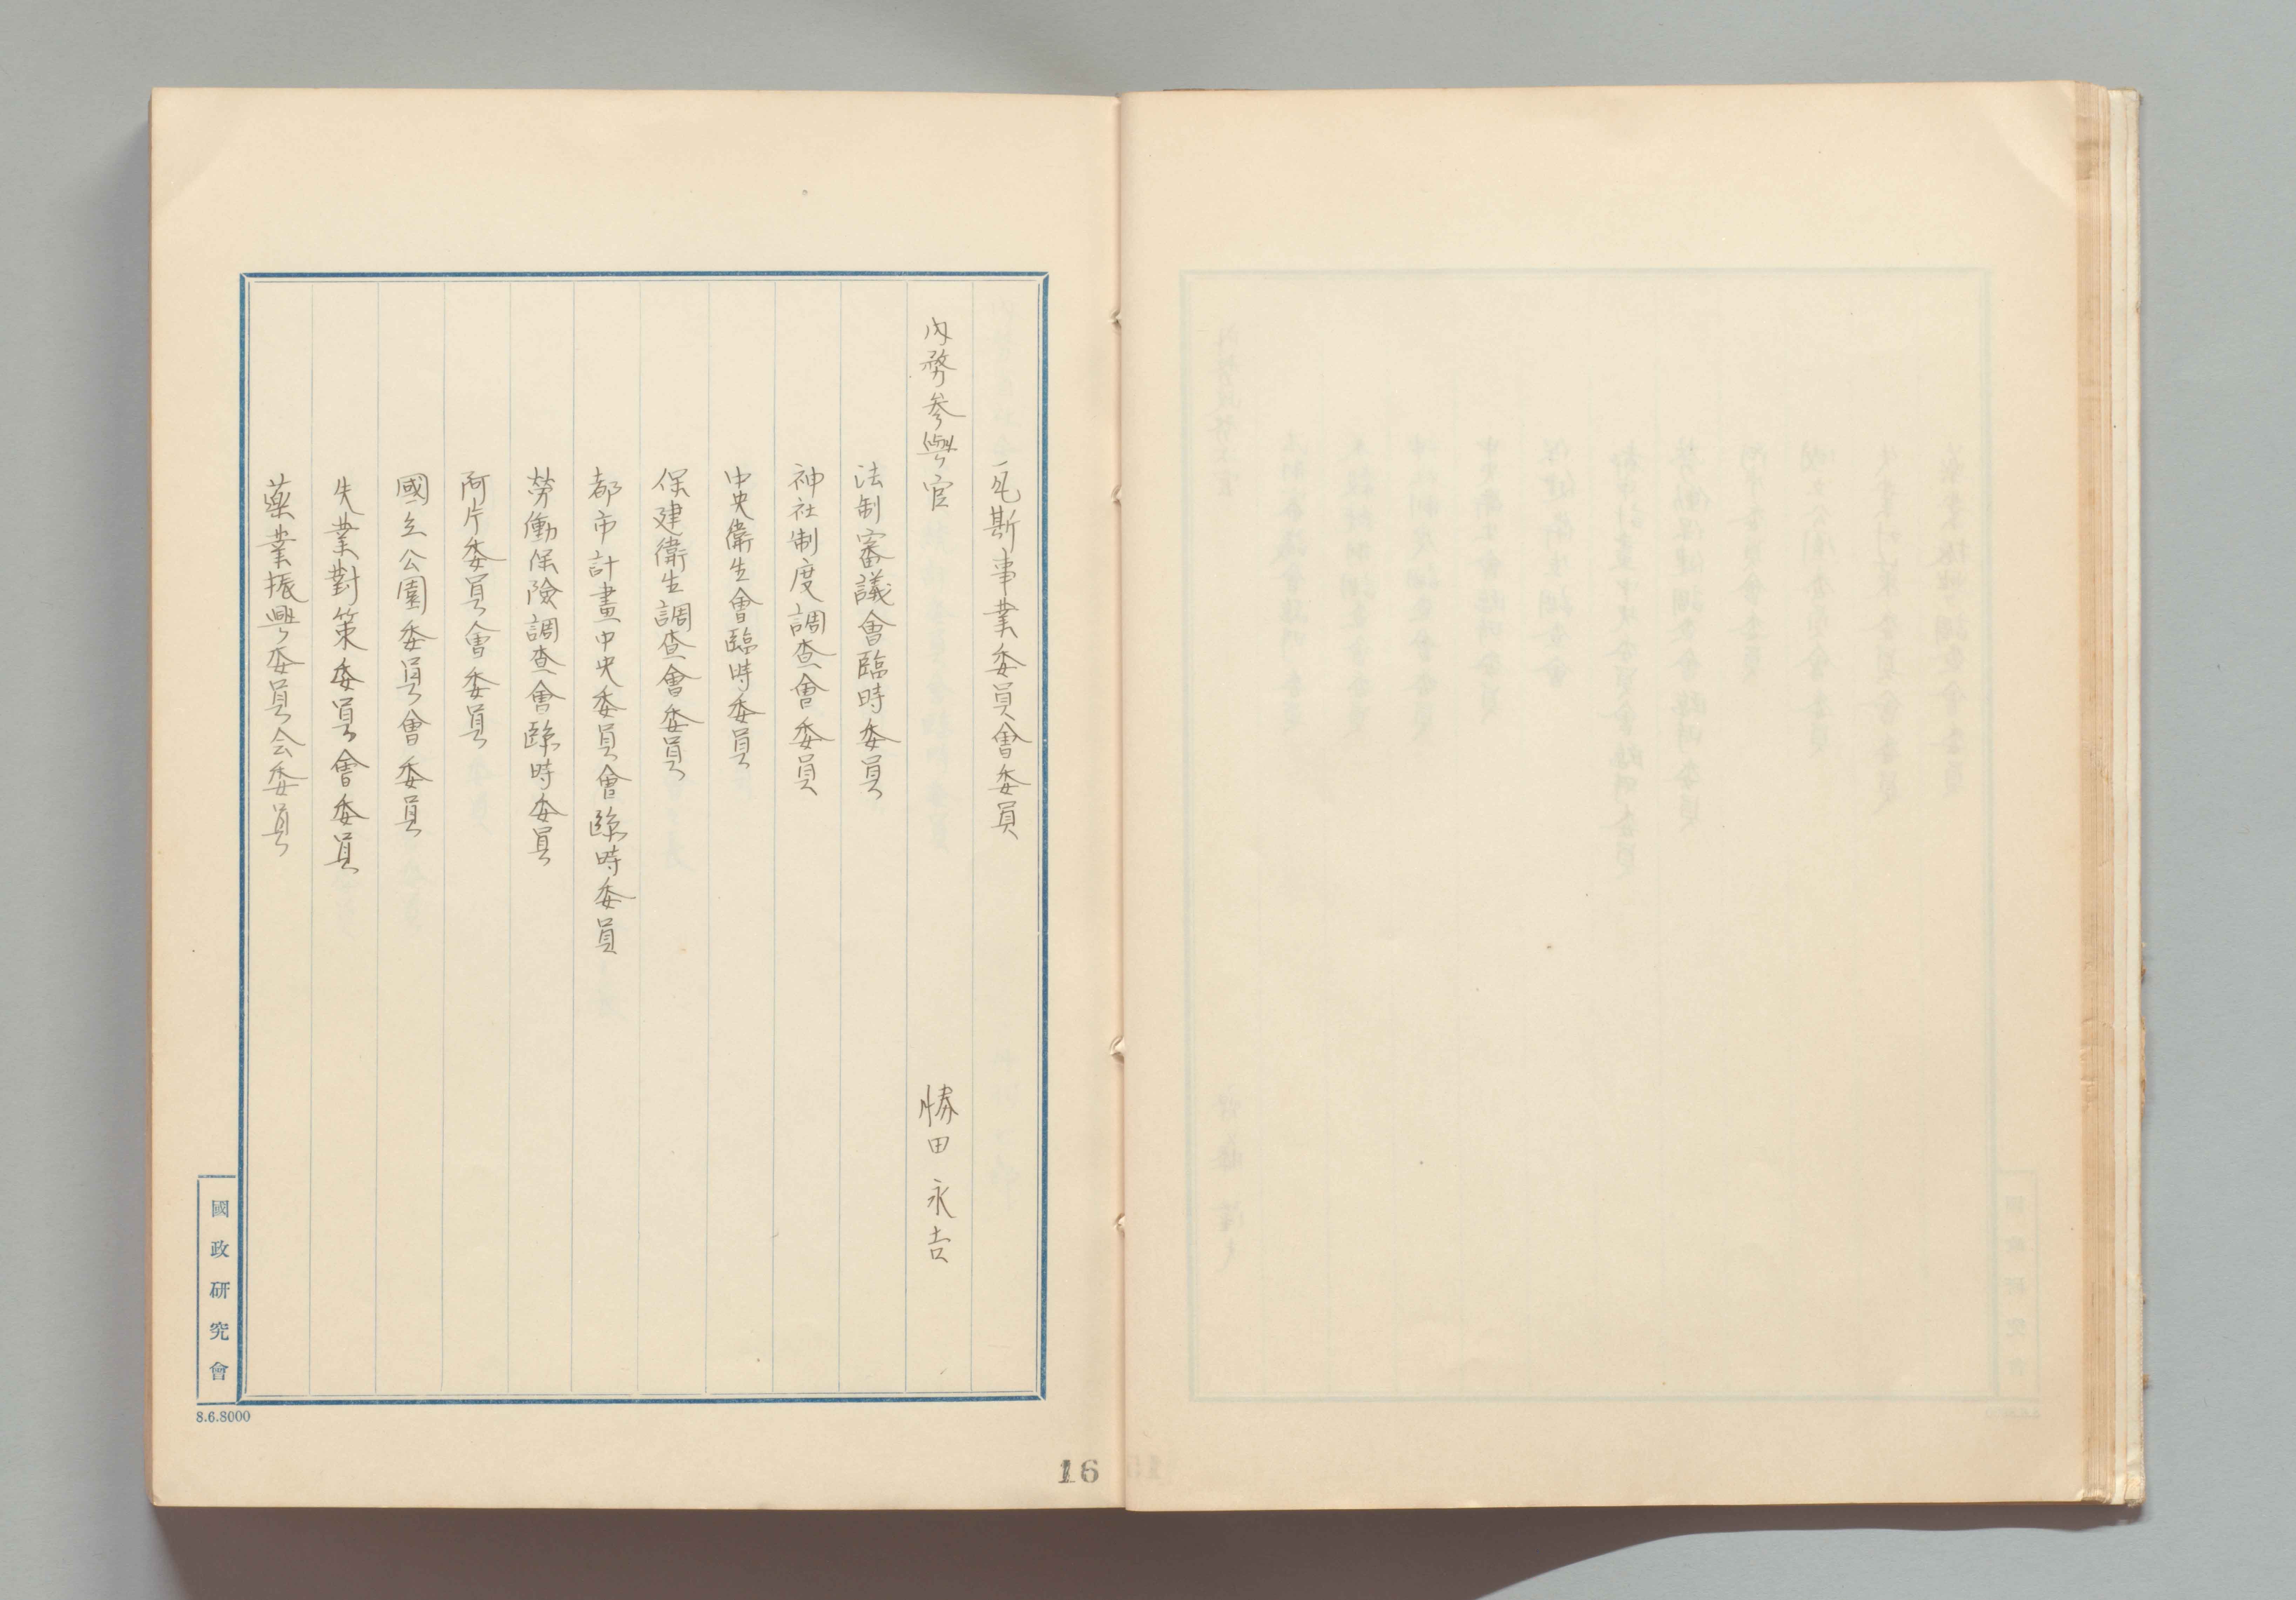 瓦斯事業委員會委員
内務参與官 勝田永吉
法制審議會臨時委員
神社制度調查會委員
中央衛生會臨時委員
保建衛生調查會委員
都市計畫中央委員會臨時委員
勞働保險調查會臨時委員
阿片委員會委員
國立公園委員會委員
失業對策委員會委員
薬業振興委員会委員
國政研究會
8.6.8000
16